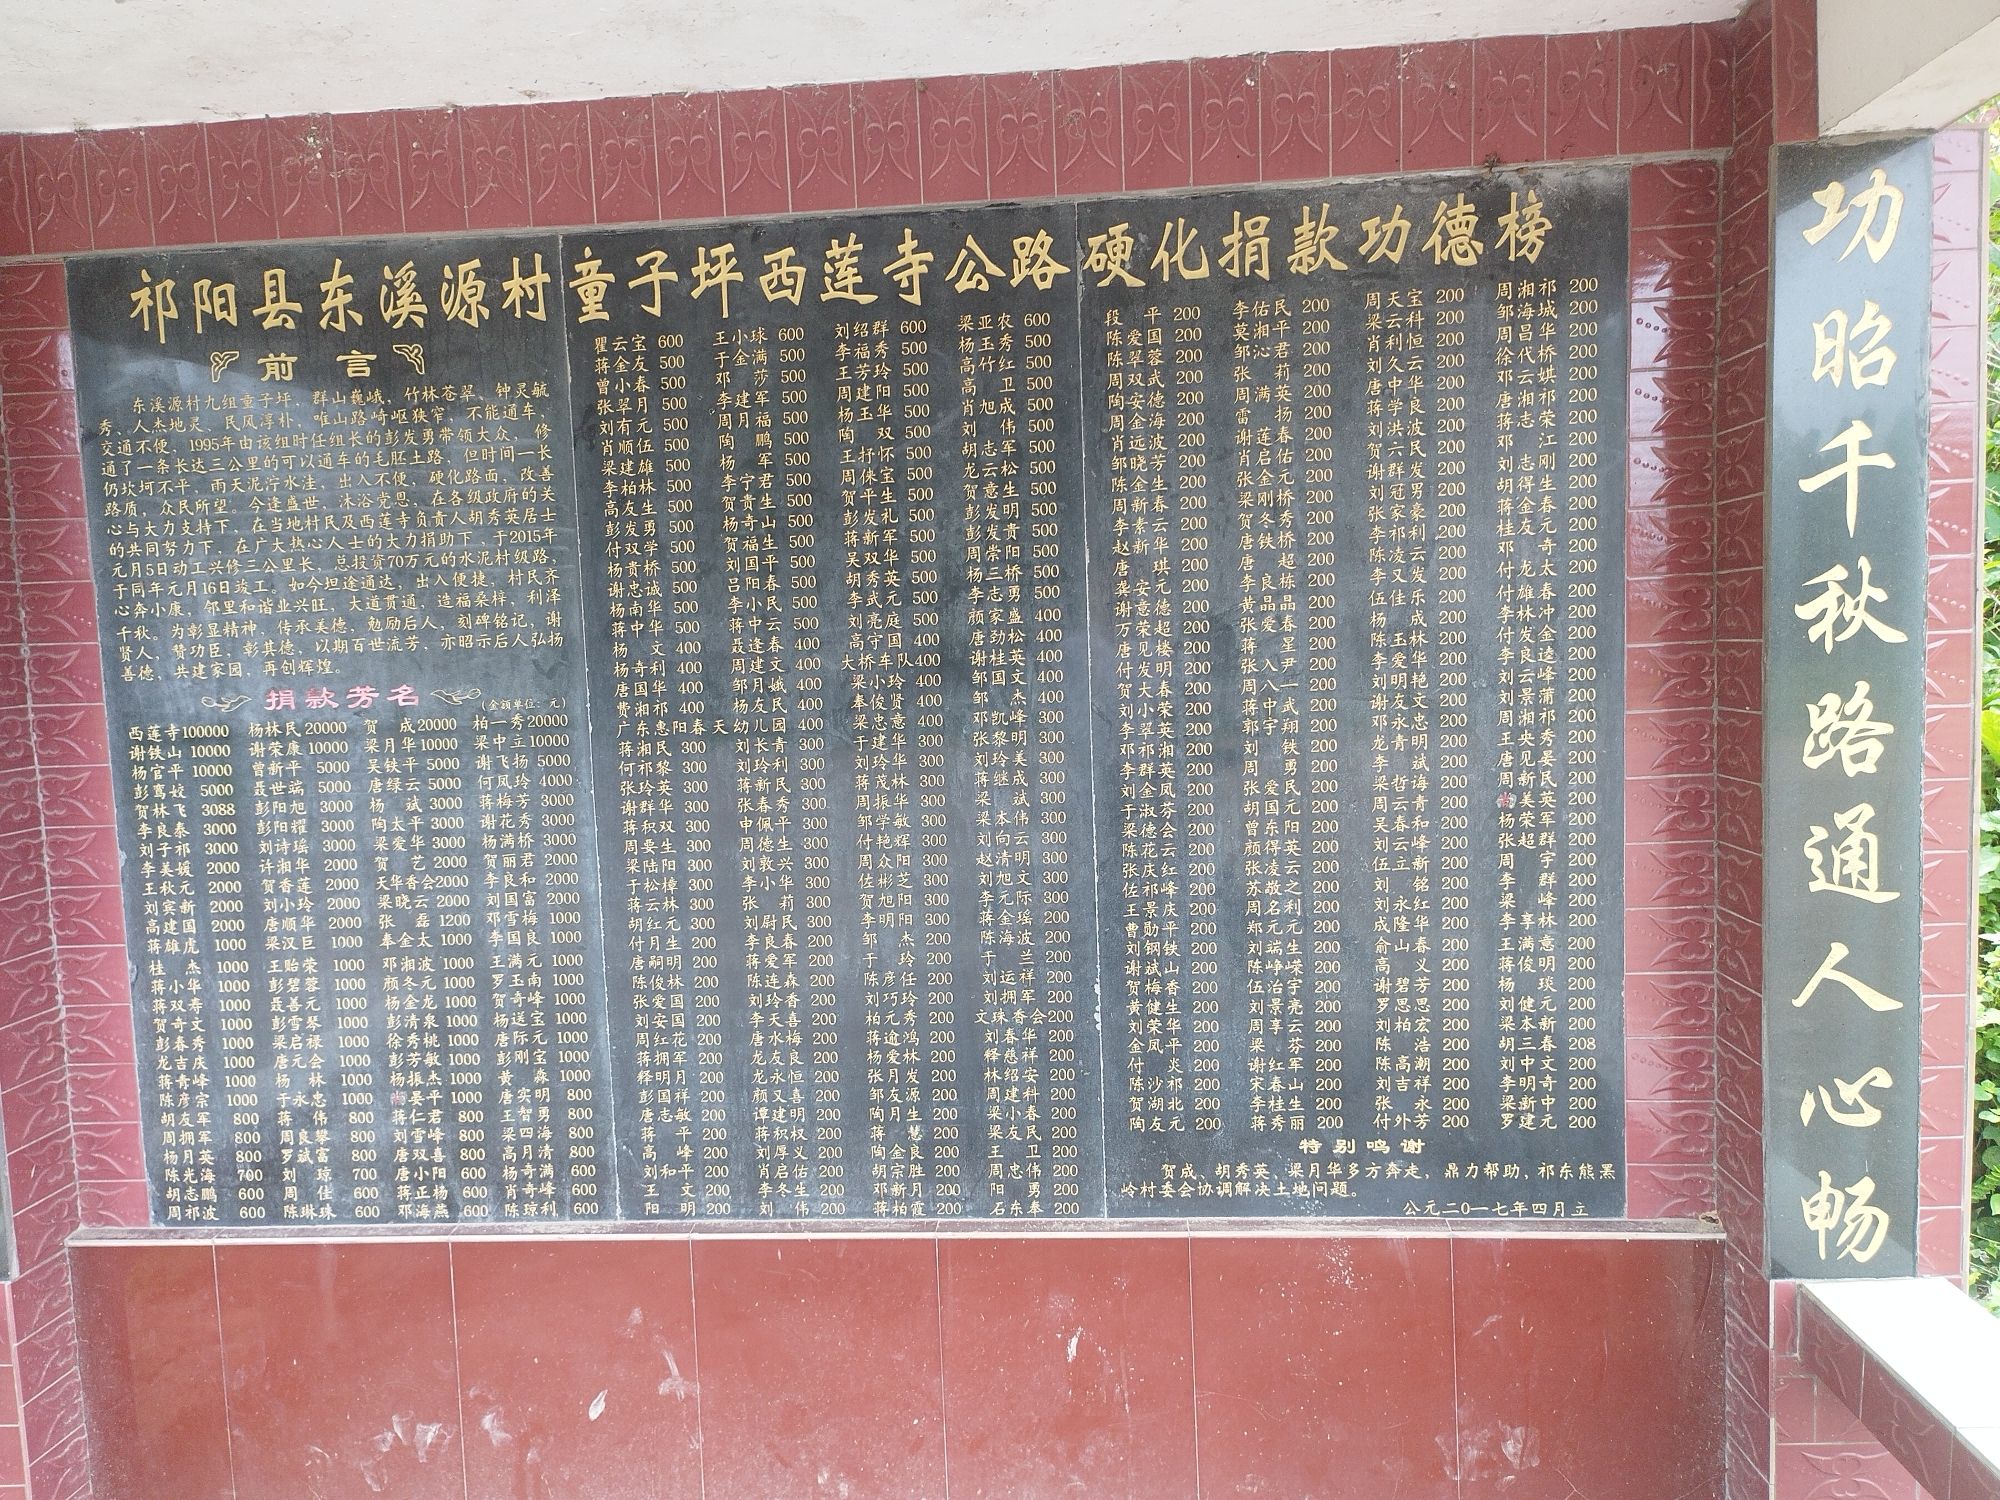 祁阳县东溪源村童子坪西莲寺公路硬化捐款功德榜
前言
东溪源村九组童子坪，群山巍峨、竹林苍翠、钟灵毓
秀、人杰地灵、民风淳朴，唯山路崎岖狭窄，不能通车，
交通不便，1995年由该组时任组长的彭发勇带领大众，修
通了一条长达三公里的可以通车的毛胚土路，但时间一长
仍坎坷不平，雨天泥泞水洼，出入不便，硬化路面，改善
路质，众民所望。今逢盛世，沐浴党恩，在各级政府的关
心与大力支持下，在当地村民及西莲寺负责人胡秀英居士
的共同努力下，在广大热心人士的大力捐助下，于2015年
元月5日动工兴修三公里长，总投资70万元的水泥村级路，
于同年元月16日竣工。如今坦途通达，出入便捷，村民齐
心奔小康，邻里和谐业兴旺，大道贯通，造福桑梓，利泽
千秋。为彰显精神，传承美德，勉励后人，刻碑铭记，谢
贤人，赞功臣，彰其德，以期百世流芳，亦昭示后人弘扬
善德，共建家园，再创辉煌。
捐款芳名 (金额单位：元)
西莲寺100000 杨林民20000 贺成20000 柏一秀20000
谢铁山10000 谢荣康10000 梁月华10000 梁中立10000
杨官平10000 曾新平5000 吴铁平5000 谢飞扬5000
彭鸾姣5000 聂世端5000 唐绿云5000 何凤玲4000
贺林飞3088 彭阳旭3000 杨斌3000 蒋梅芳3000
李良泰3000 彭阳耀3000 陶太平3000 谢花秀3000
刘子祁3000 刘诗瑶3000 梁爱华3000 杨满桥3000
李美媛2000 许湘华2000 贺艺2000 贺丽君2000
王秋元2000 贺香莲2000 天华香会2000 李良和2000
刘宾新2000 刘小玲2000 梁晓云2000 刘国富2000
高建国2000 唐顺华2000 张磊1200 邓雪梅1000
蒋雄虎1000 梁汉巨1000 奉金太1000 李国良1000
桂杰1000 王贻荣1000 邓湘波1000 王满元1000
蒋小华1000 彭碧蓉1000 颜冬元1000 罗玉南1000
蒋双寿1000 聂善元1000 杨金龙1000 贺奇峰1000
贺奇文1000 彭雪琴1000 彭清泉1000 杨送宝1000
彭春秀1000 梁启禄1000 徐秀桃1000 唐际元1000
龙吉庆1000 唐元会1000 彭芳敏1000 彭刚宝1000
蒋青峰1000 杨林1000 杨振杰1000 黄淼1000
陈彦宗1000 于永忠1000 尚晏平1000 唐实明800
胡友军800 蒋伟800 蒋仁君800 王智勇800
周拥军800 周良攀800 刘雪峰800 梁四海800
杨月英800 罗斌富800 唐双喜800 高月清800
陈光海700 刘琼700 唐小阳600 杨奇满600
胡志鹏600 周佳600 蒋正杨600 肖奇峰600
周祁波600 陈琳珠600 邓海燕600 陈琼利600
瞿云宝600 王小球600 刘绍群600 梁亚农600
蒋金友500 于金满500 李福秀500 杨玉秀500
曾小春500 邓莎500 王芳玲500 高竹红500
张翠月500 李建军500 周建阳500 高卫500
刘有元500 周月福500 杨玉华500 肖旭成500
肖顺伍500 陶鹏500 陶双500 刘伟500
梁建雄500 杨军500 王抒怀500 胡志军500
李柏林500 李宁君500 周俫宝500 龙云松500
高友生500 贺贵生500 贺平生500 贺意生500
彭发勇500 杨奇山500 彭发礼500 彭发明500
付双学500 贺福生500 蒋新军500 彭发贵500
杨贵桥500 刘国平500 吴双华500 周崇阳500
谢忠诚500 吕阳春500 胡秀英500 杨三桥500
杨南华500 李小民500 李武元500 李志勇500
蒋中华500 蒋中云500 刘亮庭500 颜家盛400
杨文400 聂逢春400 高守国400 唐劲松400
杨奇利400 周建文400 大桥车队400 谢桂英400
唐国华400 邹月娥400 梁小玲400 邹国文400
费湘祁400 杨友民400 奉俊贤400 邹杰400
广东惠阳春天幼儿园400 梁忠意400 邓凯峰300
蒋湘民300 刘长青300 于建华300 张黎明300
何祁黎300 刘玲利300 刘玲华300 刘玲美300
张玲英300 蒋新民300 刘茂林300 蒋继成300
谢群华300 张春秀300 周振华300 梁斌300
蒋积双300 申佩平300 邹学敏300 梁本伟300
周要生300 周德生300 付艳辉300 刘向云300
梁陆阳300 刘敦兴300 周众阳300 赵清明300
于松樟300 李小华300 佐彬芝300 刘旭文300
蒋云林300 张莉300 贺旭阳300 李元际300
胡红元300 刘尉民300 李明阳300 蒋金瑶300
付月生200 李良春200 邹杰200 陈海波200
唐嗣明200 蒋爱军200 于玲200 于兰200
陈俊林200 陈连森200 陈彦任200 刘运祥200
张爱国200 刘玲香200 刘巧玲200 刘拥军200
刘安国200 李天喜200 柏元秀200 文殊香会200
周红花200 唐水梅200 蒋逾鸿200 刘春华200
蒋拥军200 龙友良200 杨爱林200 释慈祥200
释明月200 龙永恒200 张月发200 林绍安200
彭国祥200 颜又喜200 邹友源200 周建科200
唐志敏200 谭建明200 陶月生200 梁小春200
蒋平200 蒋积权200 蒋慧200 梁友民200
高峰200 刘厚义200 陶金良200 王卫200
刘和平200 肖启佑200 胡宗胜200 周忠伟200
王文200 李冬生200 邓新月200 阳勇200
阳明200 刘伟200 蒋柏霞200 石东奉200
段平200 李佑民200 周天宝200 周湘祁200
陈爱国200 莫湘平200 梁云科200 邹海城200
陈翠蓉200 邹沁君200 肖利恒200 周昌华200
周双武200 张莉200 刘久云200 徐代桥200
陶安德200 周满英200 唐中华200 邓云娸200
周金海200 雷扬200 蒋学良200 唐湘志200
肖远波200 谢莲春200 刘洪波200 蒋祁荣200
邹晓芳200 肖启佑200 贺六民200 邓江200
陈金生200 张金元200 谢群发200 刘志刚200
周新春200 梁刚桥200 刘冠男200 胡得生200
李素云200 贺冬秀200 张家豪200 蒋金春200
赵新华200 唐铁桥200 李祁利200 桂友元200
唐琪200 唐超200 陈凌云200 邓奇200
龚安元200 李良栋200 李又发200 付龙大200
谢意德200 黄晶晶200 伍佳乐200 付雄春200
万荣超200 张爱200 杨成200 李林冲200
唐见楼200 蒋星200 陈玉林200 付发金200
付发明200 张入尹200 李爱华200 李良逵200
贺大春200 周八一200 刘明艳200 刘云峰200
刘小荣200 蒋中武200 刘友文200 刘景蒲200
李翠英200 郭宇翔200 邓永忠200 周湘祁200
邓祁湘200 刘铁200 龙青明200 王央秀200
李群英200 周勇200 李斌200 唐见晏200
刘金凤200 张爱民200 梁哲海200 周新民200
于淑芬200 胡国元200 周云青200 尚美英200
梁德会200 曾东阳200 吴春和200 杨荣军200
陈花云200 颜得英200 刘云峰200 张超群200
张庆红200 张凌云200 伍立新200 周宇200
佐祁峰200 苏敬之200 刘铭200 李群200
王景庆200 周名利200 刘永红200 梁峰200
曹勋平200 郑元元200 成隆华200 李享林200
刘钢铁200 刘端生200 俞山春200 王满意200
谢斌山200 陈峥嵘200 高义200 蒋俊明200
贺梅香200 伍治宇200 谢碧芳200 杨琰200
黄健生200 刘景亮200 罗思思200 刘健元200
刘荣华200 周享云200 刘柏宏200 梁本新200
金凤平200 梁芬200 陈浩200 胡三春208
付炎200 谢红军200 陈高潮200 刘中文200
陈沙祁200 宋春山200 刘吉祥200 李明奇200
贺湖北200 李桂生200 张永200 梁新中200
陶友元200 蒋秀丽200 付外芳200 罗建元200
特别鸣谢
贺成、胡秀英、梁月华多方奔走，鼎力帮助，祁东熊黑
岭村委会协调解决土地问题。
公元二0一七年四月立
功昭千秋路通人心畅